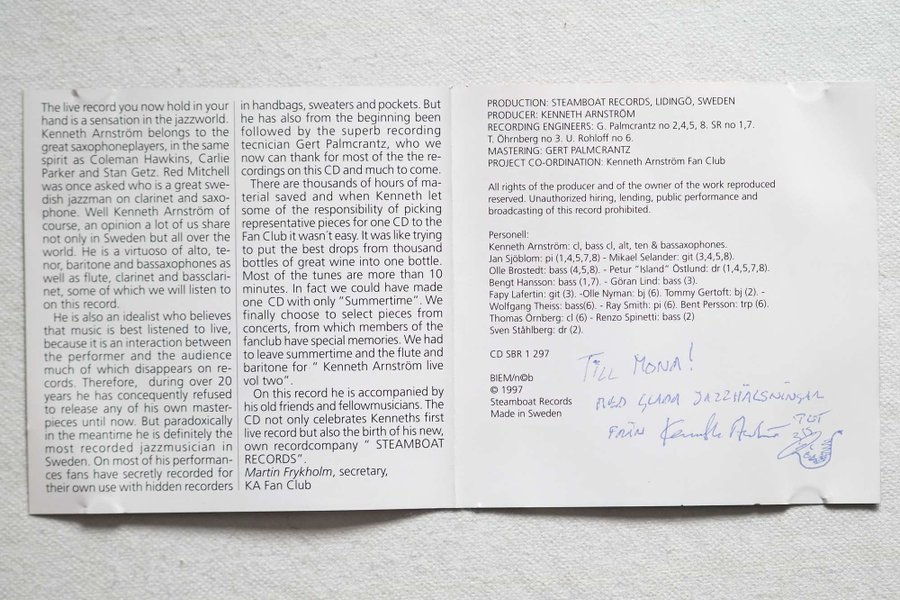 The live record you now hold in your
hand is a sensation in the jazzworld.
Kenneth Arnström belongs to the
great saxophoneplayers, in the same
spirit as Coleman Hawkins, Carlie
Parker and Stan Getz. Red Mitchell
was once asked who is a great swe-
dish jazzman on clarinet and saxo-
phone. Well Kenneth Arnström of
course, an opinion a lot of us share
not only in Sweden but all over the
world. He is a virtuoso of alto, te-
nor, baritone and bassaxophones as
well as flute, clarinet and bassclari-
net, some of which we will listen to
on this record.
He is also an idealist who believes
that music is best listened to live,
because it is an interaction between
the performer and the audience
much of which disappears on re-
cords. Therefore, during over 20
years he has concequently refused
to release any of his own master-
pieces until now. But paradoxically
in the meantime he is definitely the
most recorded jazzmusician in
Sweden. On most of his performan-
ces fans have secretly recorded for
their own use with hidden recorders
in handbags, sweaters and pockets. But
he has also from the beginning been
followed by the superb recording
tecnician Gert Palmcrantz, who we
now can thank for most of the the re-
cordings on this CD and much to come.
There are thousands of hours of ma-
terial saved and when Kenneth let
some of the responsibility of picking
representative pieces for one CD to the
Fan Club it wasn´t easy. It was like trying
to put the best drops from thousand
bottles of great wine into one bottle.
Most of the tunes are more than 10
minutes. In fact we could have made
one CD with only "Summertime". We
finally choose to select pieces from
concerts, from which members of the
fanclub have special memories. We had
to leave summertime and the flute and
baritone for " Kenneth Arnström live
vol two".
On this record he is accompanied by
his old friends and fellowmusicians. The
CD not only celebrates Kenneths first
live record but also the birth of his new,
own recordcompany " STEAMBOAT
RECORDS".
Martin Frykholm, secretary,
KA Fan Club
PRODUCTION: STEAMBOAT RECORDS, LIDINGÖ, SWEDEN
PRODUCER: KENNETH ARNSTRÖM
RECORDING ENGINEERS: G. Palmcrantz no 2,4,5, 8. SR no 1,7.
T. Öhrnberg no 3. U. Rohloff no 6.
MASTERING: GERT PALMCRANTZ
PROJECT CO-ORDINATION: Kenneth Arnström Fan Club
All rights of the producer and of the owner of the work reproduced
reserved. Unauthorized hiring, lending, public performance and
broadcasting of this record prohibited.
Personell:
Kenneth Arnström: cl, bass cl, alt, ten & bassaxophones.
Jan Sjöblom: pi (1,4,5,7,8) - Mikael Selander: git (3,4,5,8).
Olle Brostedt: bass (4,5,8). - Petur "Island" Östlund: dr (1,4,5,7,8).
Bengt Hansson: bass (1,7). - Göran Lind: bass (3).
Fapy Lafertin: git (3). -Olle Nyman: bj (6). Tommy Gertoft: bj (2). -
Wolfgang Theiss: bass(6). - Ray Smith: pi (6). Bent Persson: trp (6).
Thomas Örnberg: cl (6) - Renzo Spinetti: bass (2)
Sven Ståhlberg: dr (2).
CD SBR 1 297
BIEM/n©b
© 1997
Steamboat Records
Made in Sweden
TILL MONA!
MED GLADA JAZZHÄLSNINGAR
FRÅN Kenneth Arnström